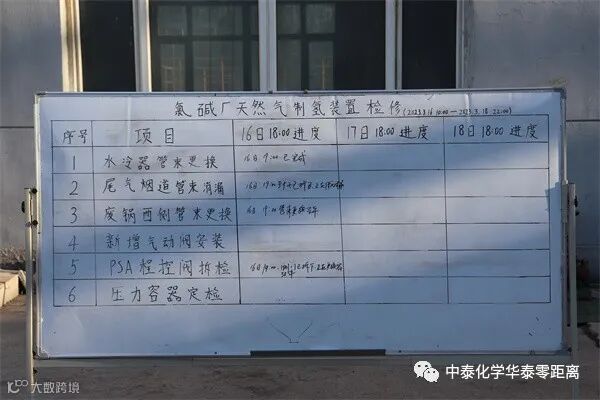 氯碱厂天然气制氢装置检修(2023.3.16 10:00—2023.3.18 22:00)
序号 项目 16日18:00进度 17日18:00进度 18日18:00进度
1 水冷器管束更换 16日9:00已完成
2 尾气烟道管束消漏 16日
3 废锅西侧管束更换 16日
4 新增气动阀安装
5 PSA程控阀拆检 16日
6 压力容器定检
大数跨境
中泰化学华泰零距离